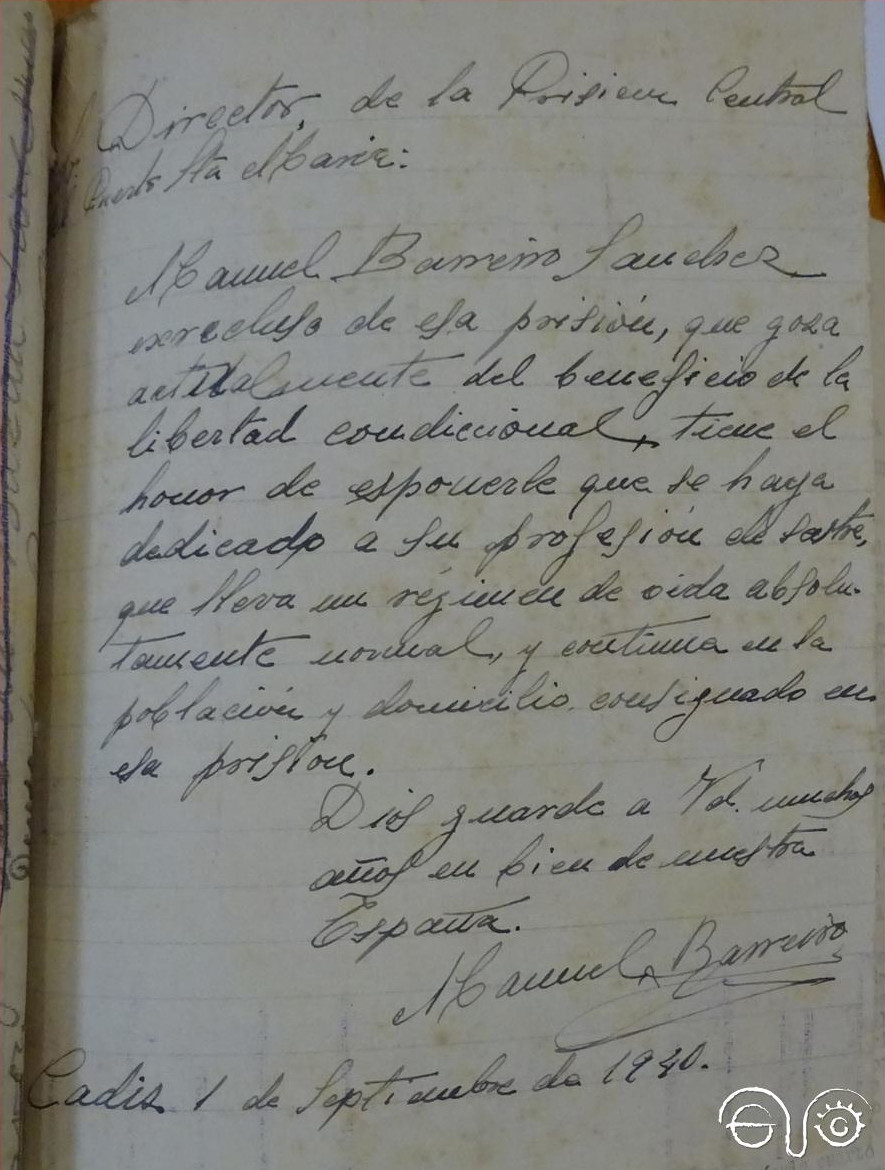 Director, de la Prisieon Central
Puerto Sta Maria:
Manuel Barreiro Sanchez
exrecluso de esa prisión, que goza
actualmente del beneficio de la
libertad condiccional, tiene el
honor de esponerle que se haya
dedicado a su profesión de sastre,
que lleva un régimen de vida absolu-
tamente normal, y continua en la
población y domicilio consignado en
esa prision.
Dios guarde a Vd. muchos
años en bien de nuestra
España.
Manuel Barreiro
Cadiz 1 de Septiembre de 1940.